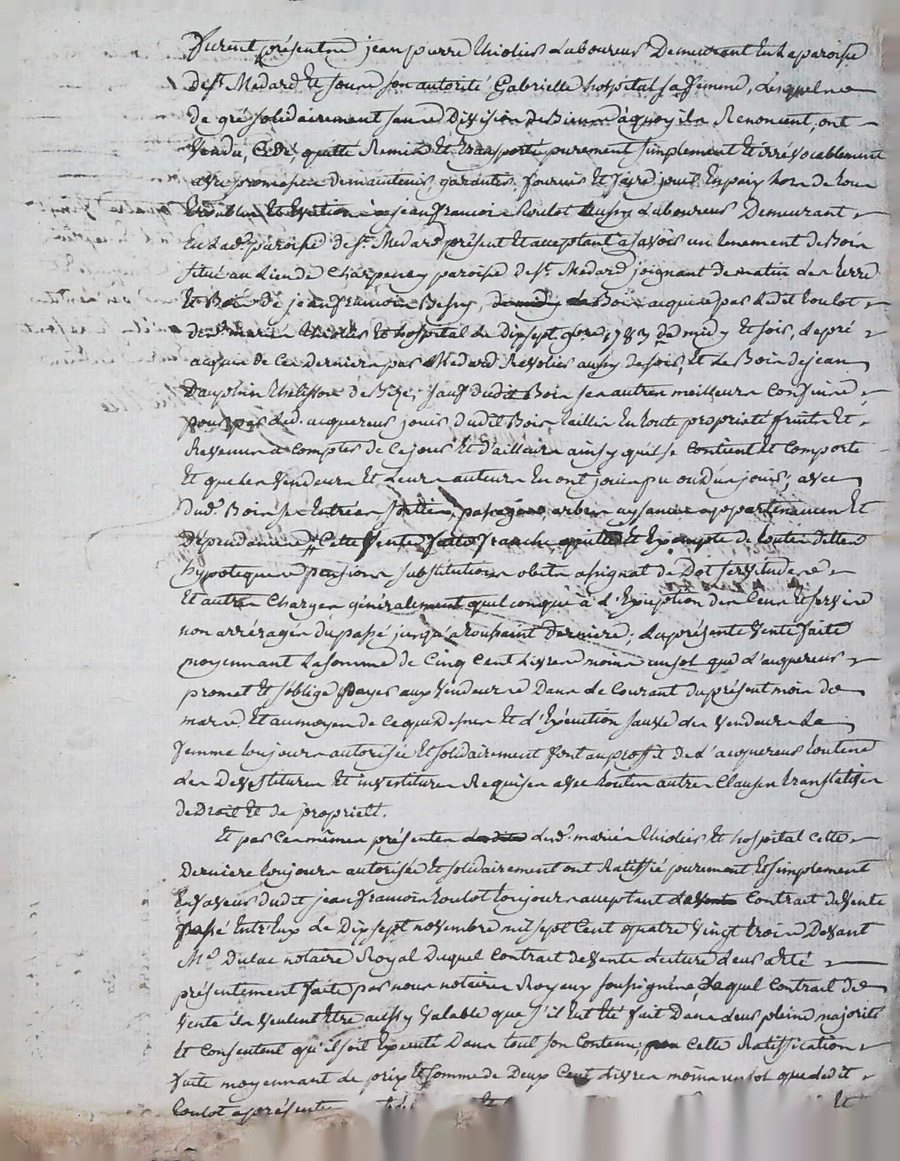 furent présentes jean pierre Thiolier Laboureur Demeurant En La paroisse
de St. Medard Et sous son autorité Gabrielle hospital sa femme, Lesquels
de gré solidairement sans Division de Biens à quoy ils Renoncent, ont
Vendu, Cédé quitté Remis Et transporté purement simplement Et irrévocablement
avec promesse de maintenir, garantir, fournir Et faire jouir En paix hors de tous
troubles Et Eviction à jean francois Toulot aussy Laboureur Demeurant
En Lad. paroisse de St. Medard présent Et acceptant à savoir un tenement de Bois
situé au Lieu de Charpeney paroisse de St. Medard joignant de matin les terre
Et Bois de jean francois Besny, de midy le Bois acquis par Ledit Toulot
des mariés Thiolier Et hospital Le Dix sept 9bre 1783 de midy Et soir, le pré
acquis de Ce Dernier par Medard aussy de soir, Et Le Bois de jean
Dauphin de Bize; sauf dudit Bois ses autres meilleurs Confins
pour par led. acquereur jouir dudit Bois taillis En toute propriété fruits Et
Revenus a Compter de Ce jour Et d'ailleurs ainsy qu'il se Contient Et Comporte
Et que les Vendeurs Et Leurs auteurs En ont joui pu ou dû jouir, avec
dud. Bois ses Entrées sorties, passages, arbres aysances appartenances Et
Dépendances # Cette Vente faite franche quitte Et Exempte de toutes dettes
hypoteques pensions substitutions obits assignat de Dot servitudes
Et autres Charges généralement quelconque à l'Exception des Cens Et servis
non arréragés du passé jusqu'a toussaint Derniere. La présente Vente faite
moyennant La somme de Cinq Cent Livres moins un sol que l'acquereur
promet Et s'oblige payer aux Vendeurs Dans le Courant du présent mois de
mars Et au moyen de Ce que Dessus Et d'Exécution des Vendeurs La
femme toujours autorisée Et solidairement font au proffit de l'acquereur toutes
Les Devestitures Et investitures Requises avec toutes autres Clauses translatives
de Droit Et de propriété.
Et par Ces mêmes présentes Lesd. mariés Thiolier Et hospital Cette
Derniere toujours autorisée Et solidairement ont Ratiffié purement Et simplement
En faveur dudit jean francois Toulot toujours acceptant Contrat de Vente
passé Entr'Eux Le Dix sept novembre mil sept Cent quatre Vingt trois Devant
Me. Dulac notaire Royal Duquel Contrat de Vente Lecture Leur a été
présentement faite par nous notaires Royaux soussignés, Lequel Contrat de
Vente ils Veulent Etre aussy Valable que s'il Eut Eté fait Dans Leur pleine majorité
Et Consentent qu'il soit Exécuté Dans tout son Contenu, Cette Ratiffication
faite moyennant Le prix Et somme de Deux Cent Livres moins un sol que ledit
Toulot a présentement